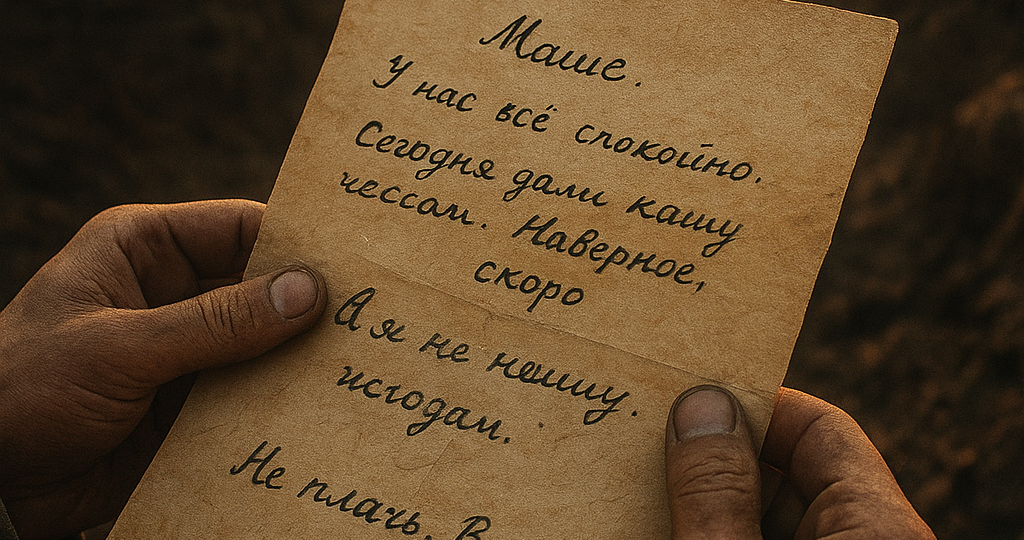 Маше.
У нас всё спокойно.
Сегодня дали кашу
чессом. Наверное,
скоро
А я не
исгодам.
Не плачь. В